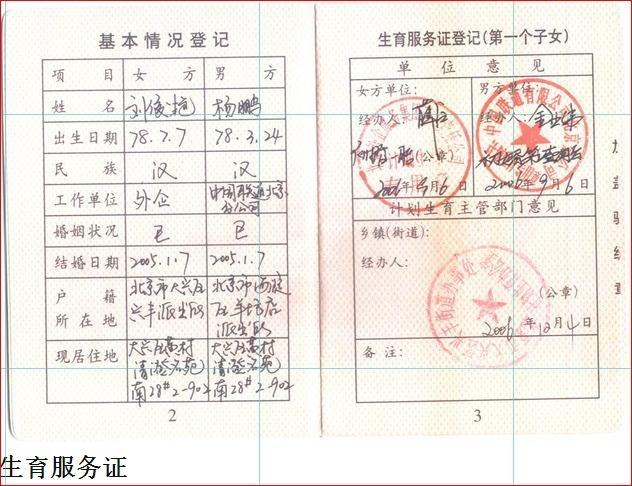 基本情况登记
项目 女方 男方
姓名 刘俊艳 杨鹏
出生日期 78.7.7 78.3.24
民族 汉 汉
工作单位 外企 中国联通北京
分公司
婚姻状况 已 已
结婚日期 2005.1.7 2005.1.7
户籍
所在地
北京市大兴区
兴丰派出所
北京市海淀
区羊坊店
派出所
现居住地
大兴区黄村
清澄名苑
南28#2-902
大兴区黄村
清澄名苑
南28#2-902
2
生育服务证登记(第一个子女)
单位意见
女方单位:
经办人:
(公章)
2006年9月6日
男方单位:
经办人:
2006年9月6日
计划生育主管部门意见
乡镇(街道):
经办人:
(公章)
2006年12月4日
备注:
3
生育服务证